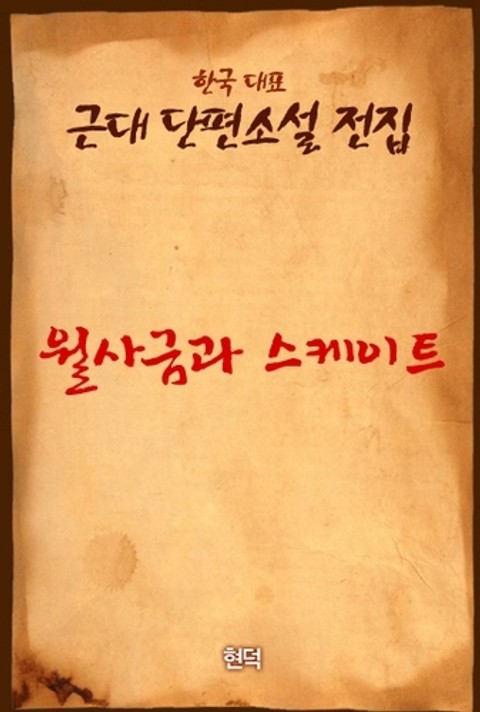 한국 대표
근대 단편소설 전집
월사금과 스케이트
현덕